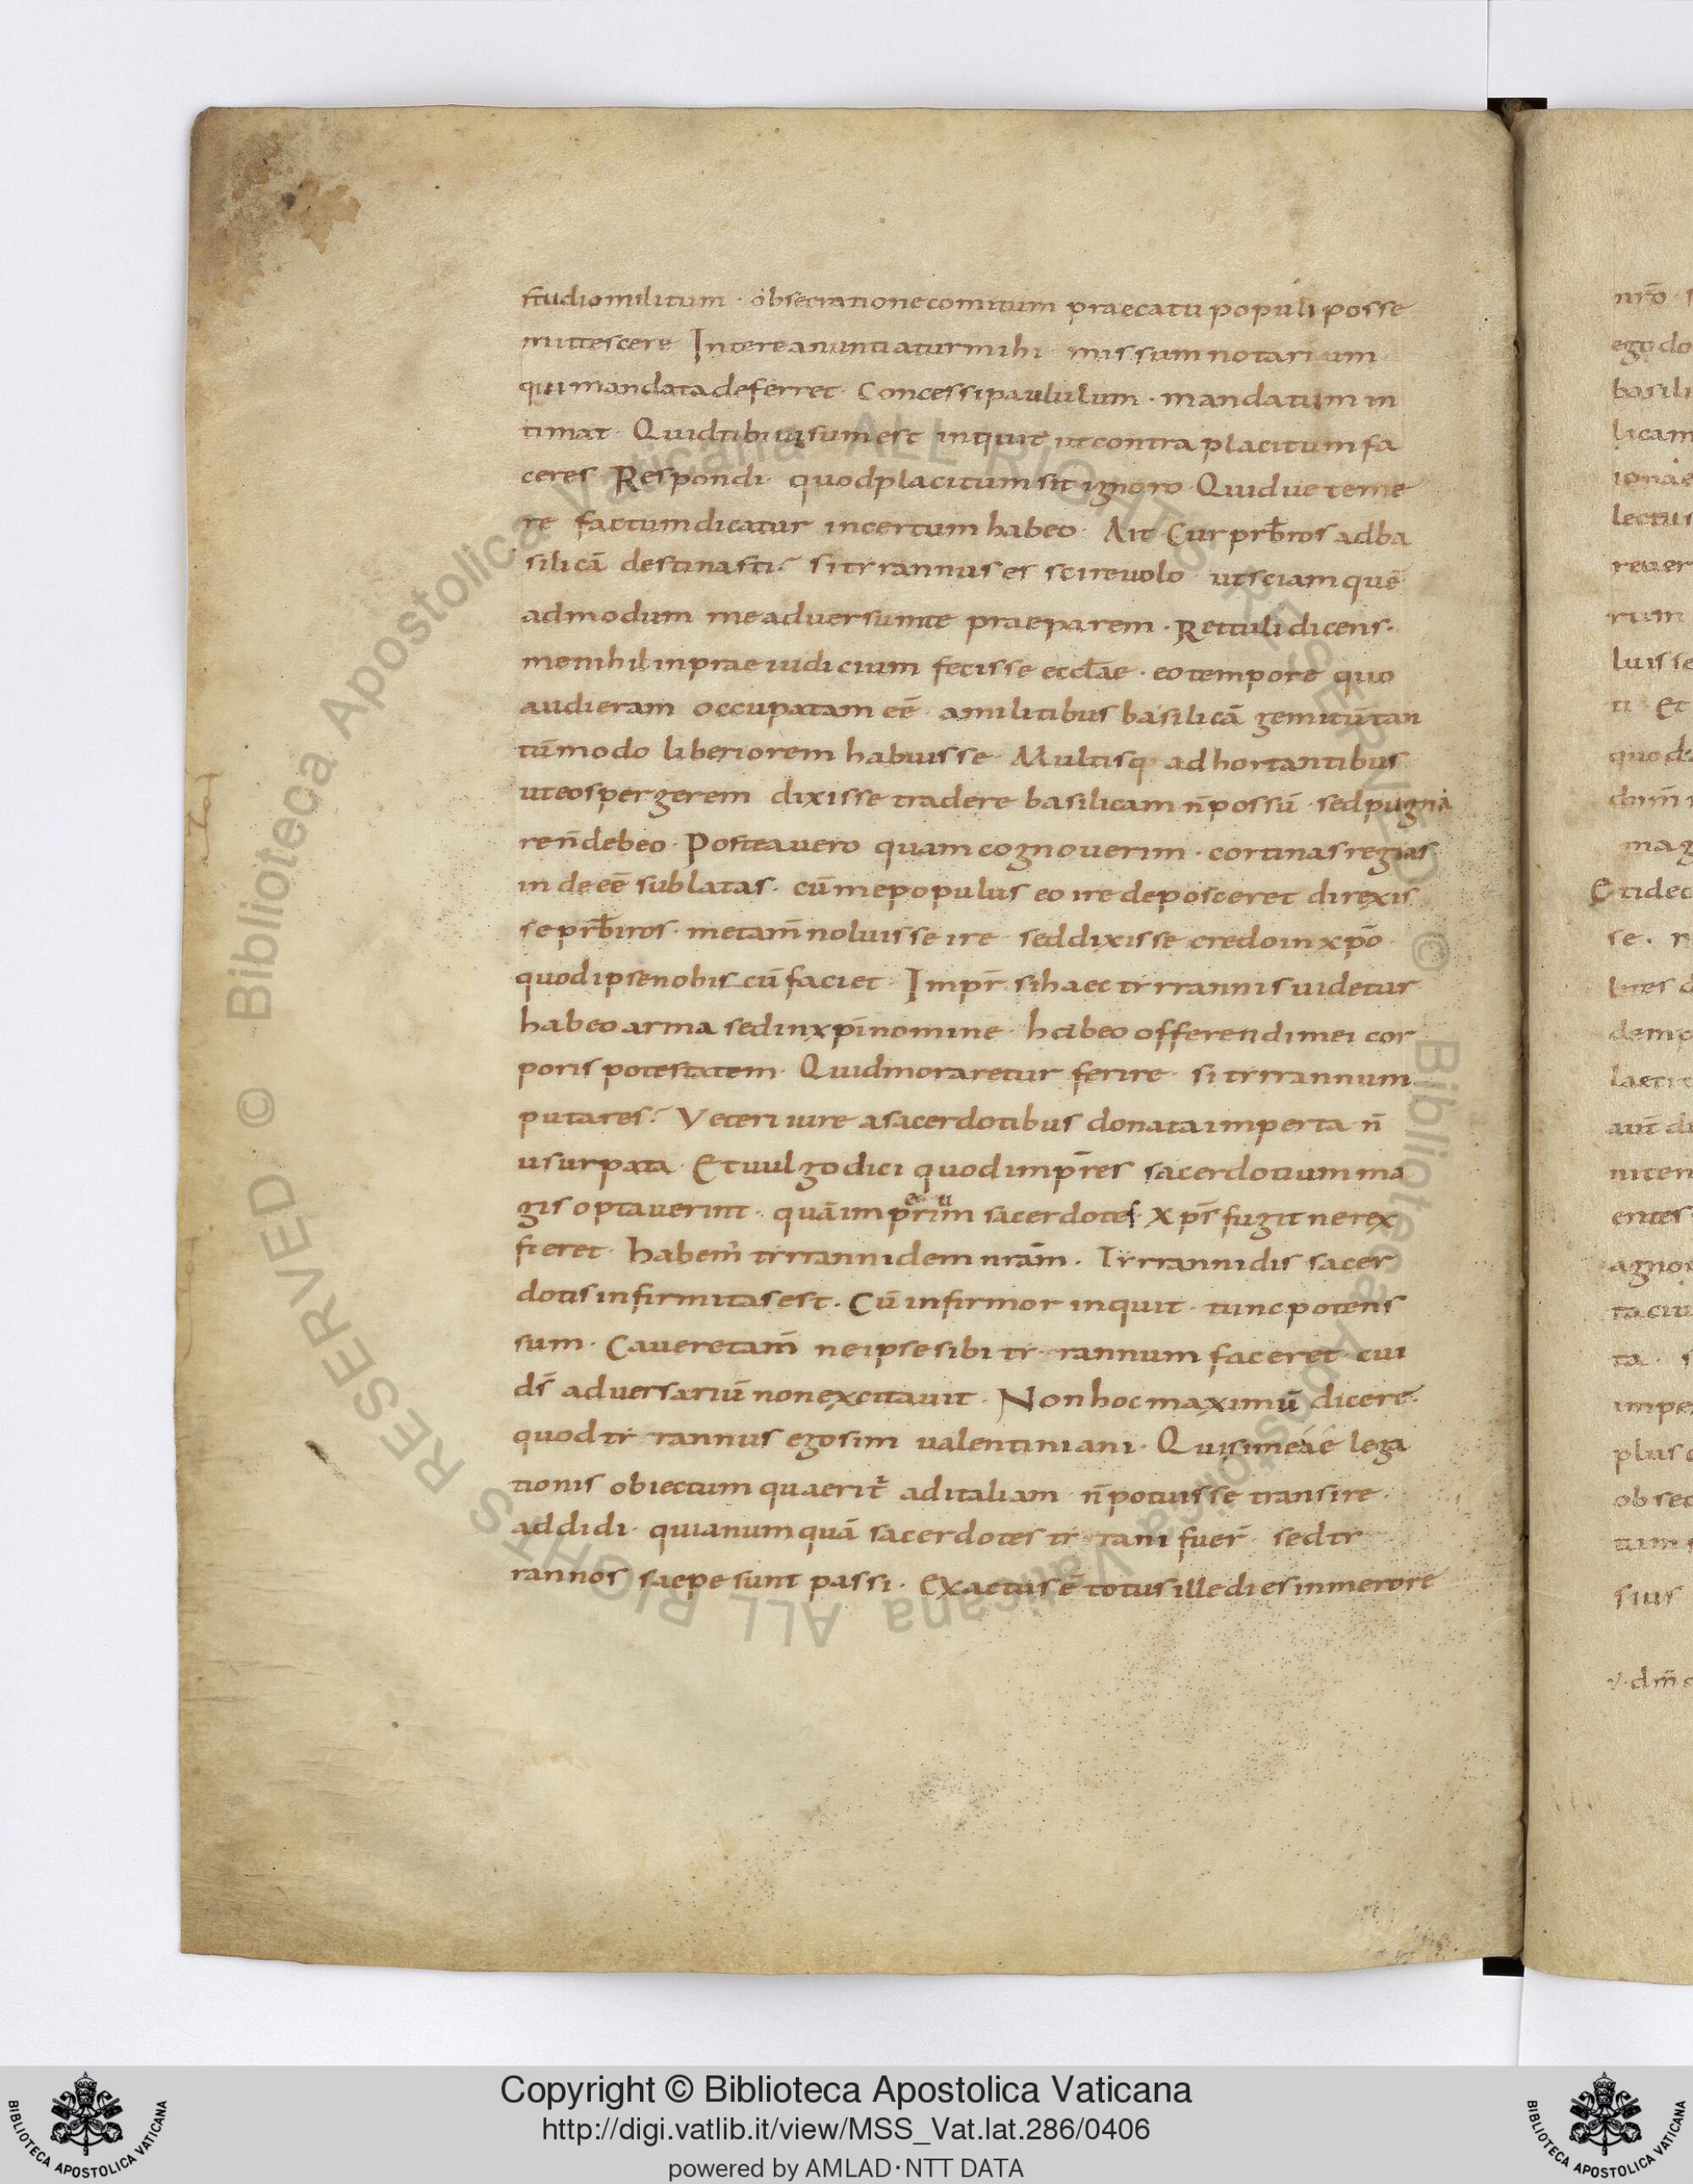 studio militum · obsecratione comitum praecatu populi posse
mittescere Interea nuntiatur mihi · missum notarium
qui mandata deferret · Concessi paululum · mandatum in
timat · Quid tibi uisum est inquit ut contra placitum fa
ceres Respondi · quod placitum sit ignoro · Quidue teme
re factum dicatur incertum habeo · Ait · Cur prb̄ros ad ba
silicā destinasti? si tirrannus es scire uolo ut sciam quē
admodum me aduersum te praeparem · Rettuli dicens ·
me nihil in praeiudicium fecisse eccl̄ae · eo tempore quo
audieram occupatam eē̄ a militibus basilicā gemitū tan
tū modo liberiorem habuisse · Multisq· adhortantibus
ut eo spergerem dixisse tradere basilicam n̄ possū · sed pugna
re n̄ debeo · Postea uero quam cognouerim · cortinas regias
inde eē̄ sublatas · cū me populus eo ire deposceret direxis
se prb̄ros · me tam̄ noluisse ire · sed dixisse credo in xp̄o
quod ipse nobiscū faciet · Imp̄r si haec tirrannis uidetur
habeo arma sed in xp̄i nomine · habeo offerendi mei cor
poris potestatem · Quid moraretur ferire · si tirrannum
putares? Veteri iure a sacerdotibus donata imperia n̄
usurpata · Et uulgo dici quod imp̄res sacerdotium ma
gis optauerint · quā imperium sacerdotes · Xp̄s fugit ne rex
fieret · habem̄ tirrannidem nrām̄ · Tirrannidis sacer
dotis infirmitas est · Cū infirmor inquit · tunc potens
sum · Caueret tam̄ ne ipse sibi tir rannum faceret cui
dś aduersariū non excitauit · Non hoc maximū dicere ·
quod tir rannus ego sim ualentiniani · Qui si meae lega
tionis obiectum quaerit̄ ad italiam n̄ potuisse transire ·
addidi · quia numquā sacerdotes tir rani fuer̄ · sed tir
rannos saepe sunt passi · Exactus ē̄ totus ille dies in merore
Copyright © Biblioteca Apostolica Vaticana
http://digi.vatlib.it/view/MSS_Vat.lat.286/0406
powered by AMLAD·NTT DATA